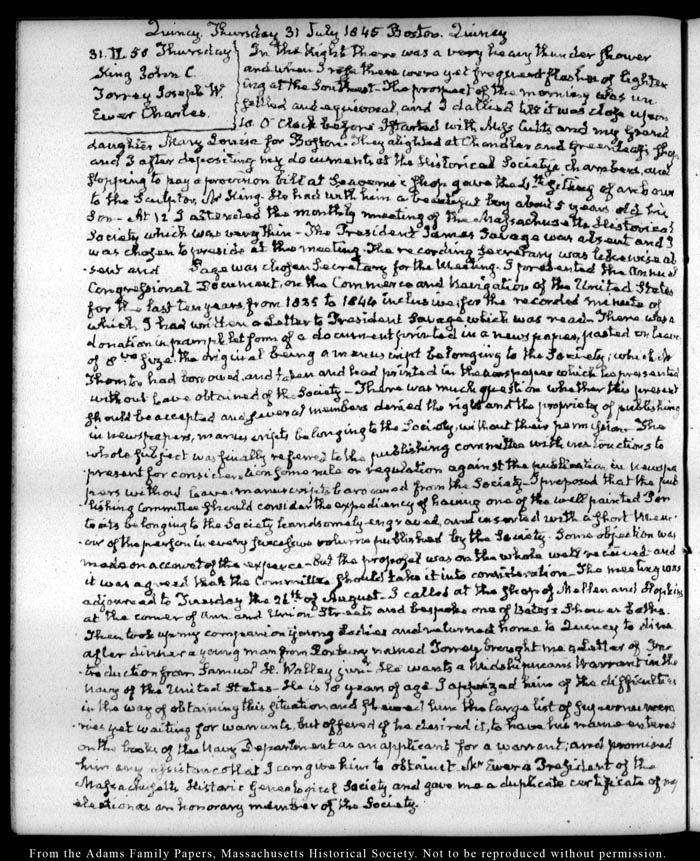 Quincy. Thursday 31 July 1845 Boston. Quincy
31. IV. 50 Thursday
King John C.
Torrey Joseph W.
Ewer Charles.
In the Night there was a very heavy thunder shower
and when I rose there were yet frequent flashes of lighten
ing at the Southwest. The prospect of the morning was un
settled and equivocal, and I dallied till it was close upon
10 O'Clock before I started with Miss Cutts and my Grand
daughter Mary Louisa for Boston. They alighted at Chandler and Greenleaf's shop
and I after depositing my documents at the Historical Society's chambers, and
stopping to pay a provision bill at Seaverns's shop gave the 4th sitting of an hour
to the Sculptor, Mr King. He had with him a beautiful boy about 5 years old his
Son. At 12 I attended the monthly meeting of the Massachusetts Historical
Society which was very thin. The President James Savage was absent and I
was chosen to preside at the meeting. The recording Secretary was likewise ab
sent and Page was chosen Secretary for the Meeting. I presented the Annual
Congressional Document, on the Commerce and Navigation of the United States
for the last ten years from 1835 to 1844 inclusive, for the recorded minute of
which I had written a Letter to President Savage which was read. There was a
donation in pamphlet form of a document printed in a newspaper, pasted on leaves
of 8vo size. the original being a manuscript belonging to the Society; which Mr
Thornton had borrowed, and taken and had printed in the newspaper which he presented
without leave obtained of the Society. There was much question whether this present
should be accepted and several members denied the right and the propriety of publishing
in newspapers, manuscripts belonging to the Society, without their permission. The
whole subject was finally referred to the publishing committee with instructions to
present for consideration some rule or regulation against the publication in newspa
pers without leave manuscripts borrowed from the Society. I proposed that the pub
lishing Committee should consider the expediency of having one of the well painted Por
traits belonging to the Society handsomely engraved, and inserted with a short Mem
oir of the person in every successive volume published by the Society. Some objection was
made on account of the expence. but the proposal was on the whole well received and
it was agreed that the Committee should take it into consideration. The meeting was
adjourned to Tuesday the 26th of August. I called at the shop of Mellen and Hopkins
at the corner of Ann and Union Streets and bespoke one of Bates's Shower baths.
Then took up my companion young Ladies and returned home to Quincy to dine
after dinner a young man from Roxbury named Torrey brought me a Letter of In
troduction from Samuel H. Walley junr. He wants a Midshipman's Warrant in the
Navy of the United States. He is 18 years of age. I apprized him of the difficulties
in the way of obtaining this situation and shewed him the large list of supernumera
ries yet waiting for warrants, but offered if he desired it, to have his name entered
on the books of the Navy Department as an applicant for a warrant; and promised
him any assistance that I can give him to obtain it. Mr Ewer is President of the
Massachusetts Historic Genealogical Society and gave me a duplicate certificate of my
election as an honorary member of the Society.
From the Adams Family Papers, Massachusetts Historical Society. Not to be reproduced without permission.